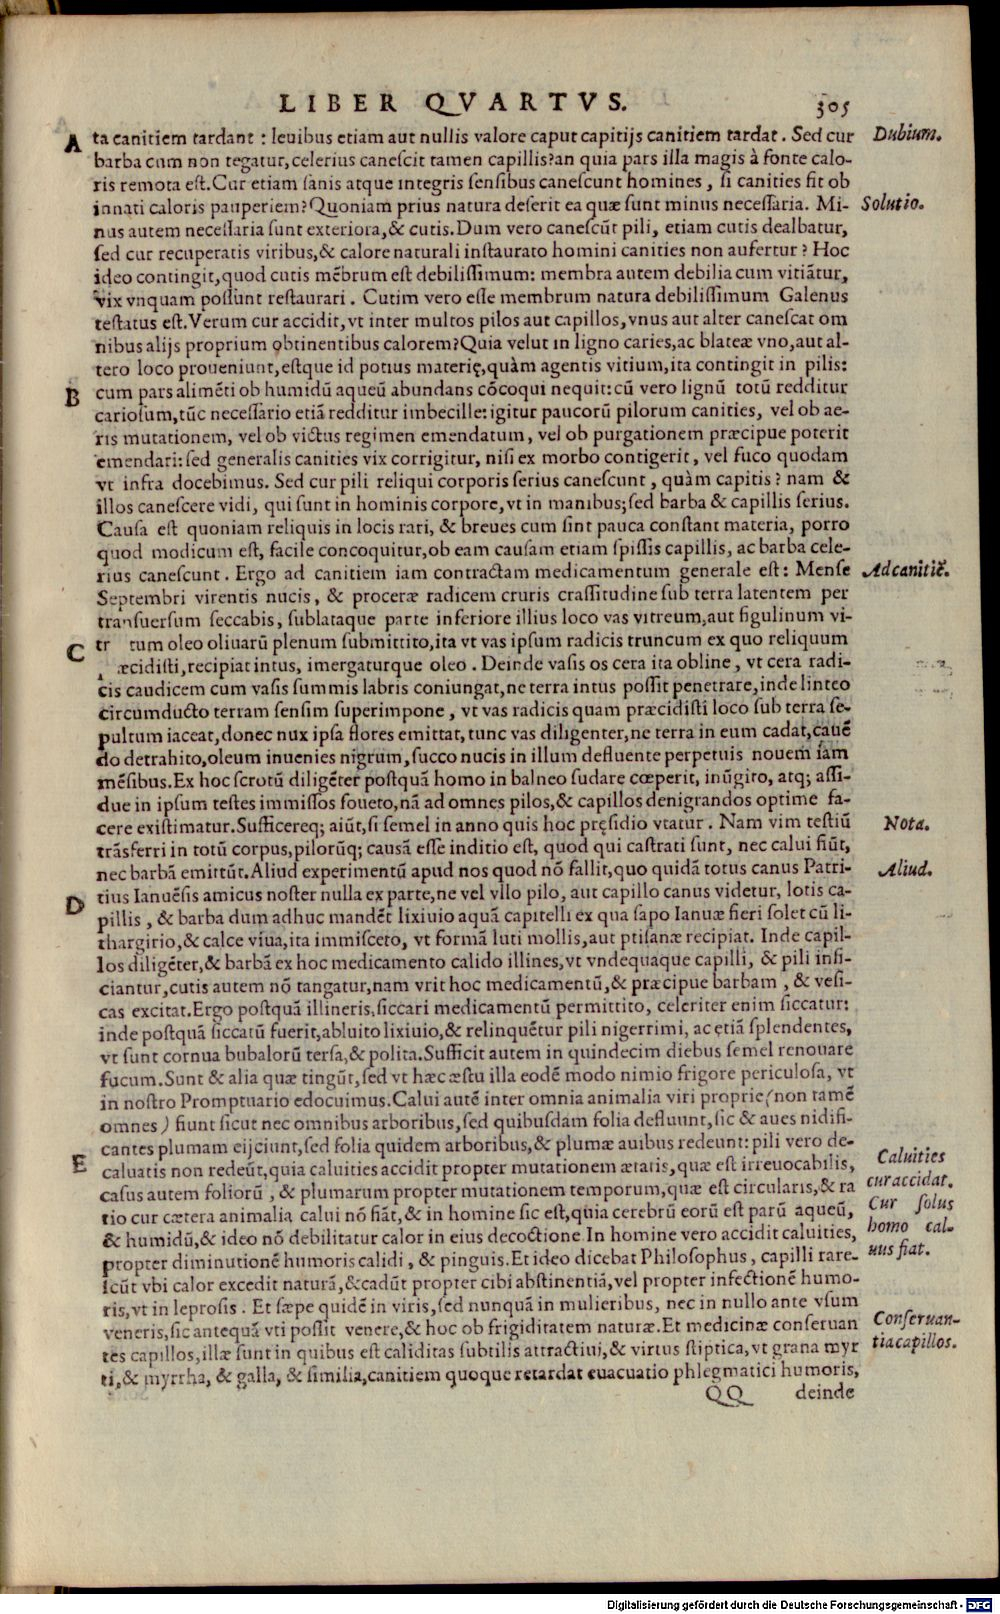 LIBER QVARTVS. 305
A ta canitiem tardant : leuibus etiam aut nullis valore caput capitijs canitiem tardat. Sed cur Dubium.
barba cum non tegatur, celerius canescit tamen capillis? an quia pars illa magis à fonte calo-
ris remota est. Cur etiam sanis atque integris sensibus canescunt homines, si canities fit ob
innati caloris pauperiem? Quoniam prius natura deserit ea quæ sunt minus necessaria. Mi- Solutio.
nus autem necessaria sunt exteriora, & cutis. Dum vero canescūt pili, etiam cutis dealbatur,
sed cur recuperatis viribus, & calore naturali instaurato homini canities non aufertur? Hoc
ideo contingit, quod cutis mēbrum est debilissimum: membra autem debilia cum vitiātur,
vix vnquam possunt restaurari. Cutim vero esse membrum natura debilissimum Galenus
testatus est. Verum cur accidit, vt inter multos pilos aut capillos, vnus aut alter canescat om
nibus alijs proprium obtinentibus calorem? Quia velut in ligno caries, ac blateæ vno, aut al-
tero loco proueniunt, estque id potius materię, quàm agentis vitium, ita contingit in pilis:
B cum pars alimēti ob humidū aqueū abundans cōcoqui nequit: cū vero lignū totū redditur
cariosum, tūc necessario etiā redditur imbecille: igitur paucorū pilorum canities, vel ob ae-
ris mutationem, vel ob victus regimen emendatum, vel ob purgationem præcipue poterit
emendari: sed generalis canities vix corrigitur, nisi ex morbo contigerit, vel fuco quodam
vt infra docebimus. Sed cur pili reliqui corporis serius canescunt, quàm capitis? nam &
illos canescere vidi, qui sunt in hominis corpore, vt in manibus; sed barba & capillis serius.
Causa est quoniam reliquis in locis rari, & breues cum sint pauca constant materia, porro
quod modicum est, facile concoquitur, ob eam causam etiam spissis capillis, ac barba cele-
rius canescunt. Ergo ad canitiem iam contractam medicamentum generale est: Mense Ad canitiē.
Septembri virentis nucis, & proceræ radicem cruris crassitudine sub terra latentem per
transuersum seccabis, sublataque parte inferiore illius loco vas vitreum, aut figulinum vi-
C tr tum oleo oliuarū plenum submittito, ita vt vas ipsum radicis truncum ex quo reliquum
æcidisti, recipiat intus, imergaturque oleo. Deinde vasis os cera ita obline, vt cera radi-
cis caudicem cum vasis summis labris coniungat, ne terra intus possit penetrare, inde linteo
circumducto terram sensim superimpone, vt vas radicis quam præcidisti loco sub terra se-
pultum iaceat, donec nux ipsa flores emittat, tunc vas diligenter, ne terra in eum cadat, cauē
do detrahito, oleum inuenies nigrum, succo nucis in illum defluente perpetuis nouem iam
mēsibus. Ex hoc scrotū diligēter postquā homo in balneo sudare cœperit, inūgito, atq; assi-
due in ipsum testes immissos foueto, nā ad omnes pilos, & capillos denigrandos optime fa-
cere existimatur. Sufficereq; aiūt, si semel in anno quis hoc pręsidio vtatur. Nam vim testiū Nota.
trāsferri in totū corpus, pilorūq; causā esse inditio est, quod qui castrati sunt, nec calui fiūt,
nec barbā emittūt. Aliud experimentū apud nos quod nō fallit, quo quidā totus canus Patri- Aliud.
D tius Ianuēsis amicus noster nulla ex parte, ne vel vllo pilo, aut capillo canus videtur, lotis ca-
pillis, & barba dum adhuc mandēt lixiuio aquā capitelli ex qua sapo Ianuæ fieri solet cū li-
thargirio, & calce viua, ita immisceto, vt formā luti mollis, aut ptisanæ recipiat. Inde capil-
los diligēter, & barbā ex hoc medicamento calido illines, vt vndequaque capilli, & pili infi-
ciantur, cutis autem nō tangatur, nam vrit hoc medicamentū, & præcipue barbam, & vesi-
cas excitat. Ergo postquā illineris, siccari medicamentū permittito, celeriter enim siccatur:
inde postquā siccatū fuerit, abluito lixiuio, & relinquētur pili nigerrimi, ac ętiā splendentes,
vt sunt cornua bubalorū tersa, & polita. Sufficit autem in quindecim diebus semel renouare
fucum. Sunt & alia quæ tingūt, sed vt hæc æstu illa eodē modo nimio frigore periculosa, vt
in nostro Promptuario edocuimus. Calui autē inter omnia animalia viri proprie (non tamē
omnes) fiunt sicut nec omnibus arboribus, sed quibusdam folia defluunt, sic & aues nidifi-
cantes plumam eijciunt, sed folia quidem arboribus, & plumæ auibus redeunt: pili vero de-
E caluatis non redeūt, quia caluities accidit propter mutationem ætatis, quæ est irreuocabilis, Caluities
casus autem foliorū, & plumarum propter mutationem temporum, quæ est circularis, & ra cur accidat.
tio cur cætera animalia calui nō fiāt, & in homine sic est, quia cerebrū eorū est parū aqueū, Cur solus
& humidū, & ideo nō debilitatur calor in eius decoctione. In homine vero accidit caluities, homo cal-
propter diminutionē humoris calidi, & pinguis. Et ideo dicebat Philosophus, capilli rare- uus fiat.
scūt vbi calor excedit naturā, & cadūt propter cibi abstinentiā, vel propter infectionē humo-
ris, vt in leprosis. Et sæpe quidē in viris, sed nunquā in mulieribus, nec in nullo ante vsum
veneris, sic antequā vti possit venere, & hoc ob frigiditatem naturæ. Et medicinæ conseruan Conseruan-
tes capillos, illæ sunt in quibus est caliditas subtilis attractiui, & virtus stiptica, vt grana myr tia capillos.
ti, & myrrha, & galla, & similia, canitiem quoque retardat euacuatio phlegmatici humoris,
QQ deinde
Digitalisierung gefördert durch die Deutsche Forschungsgemeinschaft - DFG